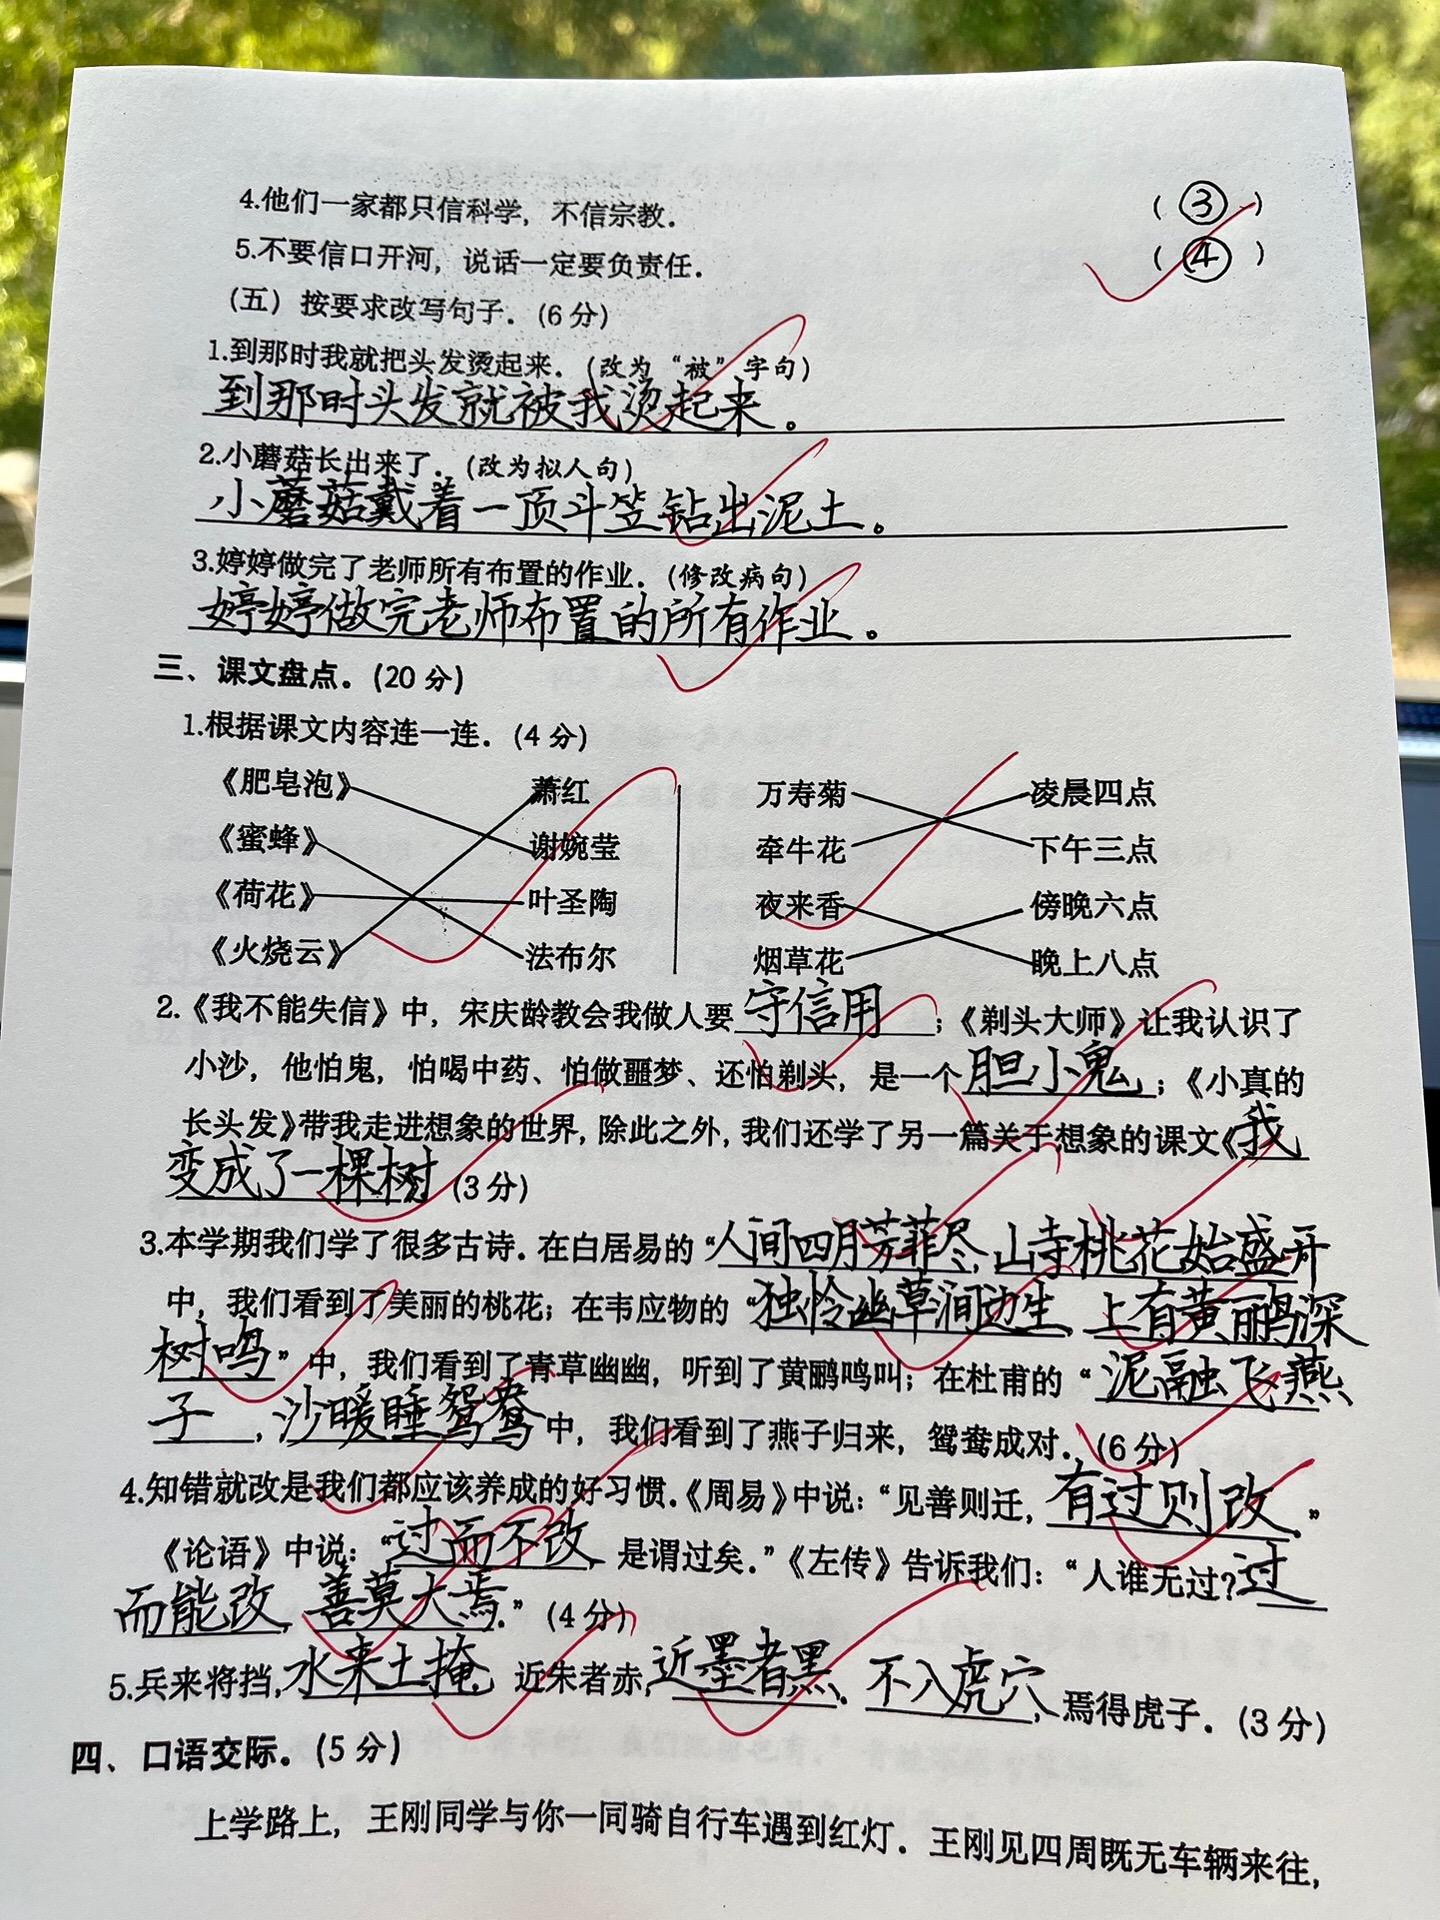 4.他们一家都只信科学，不信宗教．（③）
5.不要信口开河，说话一定要负责任．（④）
（五）按要求改写句子．（6分）
1.到那时我就把头发烫起来．（改为“被”字句）
到那时头发就被我烫起来。
2.小蘑菇长出来了．（改为拟人句）
小蘑菇戴着一顶斗笠钻出泥土。
3.婷婷做完了老师所有布置的作业．（修改病句）
婷婷做完老师布置的所有作业。
三、课文盘点．（20分）
1.根据课文内容连一连．（4分）
《肥皂泡》 萧红 万寿菊 凌晨四点
《蜜蜂》 谢婉莹 牵牛花 下午三点
《荷花》 叶圣陶 夜来香 傍晚六点
《火烧云》 法布尔 烟草花 晚上八点
2.《我不能失信》中，宋庆龄教会我做人要守信用；《剃头大师》让我认识了
小沙，他怕鬼，怕喝中药、怕做噩梦、还怕剃头，是一个胆小鬼；《小真的
长头发》带我走进想象的世界，除此之外，我们还学了另一篇关于想象的课文《我
变成了一棵树（3分）
3.本学期我们学了很多古诗．在白居易的“人间四月芳菲尽，山寺桃花始盛开
中，我们看到了美丽的桃花；在韦应物的“独怜幽草涧边生，上有黄鹂深
树鸣”中，我们看到了青草幽幽，听到了黄鹂鸣叫；在杜甫的“泥融飞燕
子，沙暖睡鸳鸯中，我们看到了燕子归来，鸳鸯成对．（6分）
4.知错就改是我们都应该养成的好习惯．《周易》中说：“见善则迁，有过则改．”
《论语》中说：“过而不改，是谓过矣．”《左传》告诉我们：“人谁无过？过
而能改，善莫大焉．”（4分）
5.兵来将挡，水来土掩．近朱者赤，近墨者黑．不入虎穴，焉得虎子．（3分）
四、口语交际．（5分）
上学路上，王刚同学与你一同骑自行车遇到红灯．王刚见四周既无车辆来往，